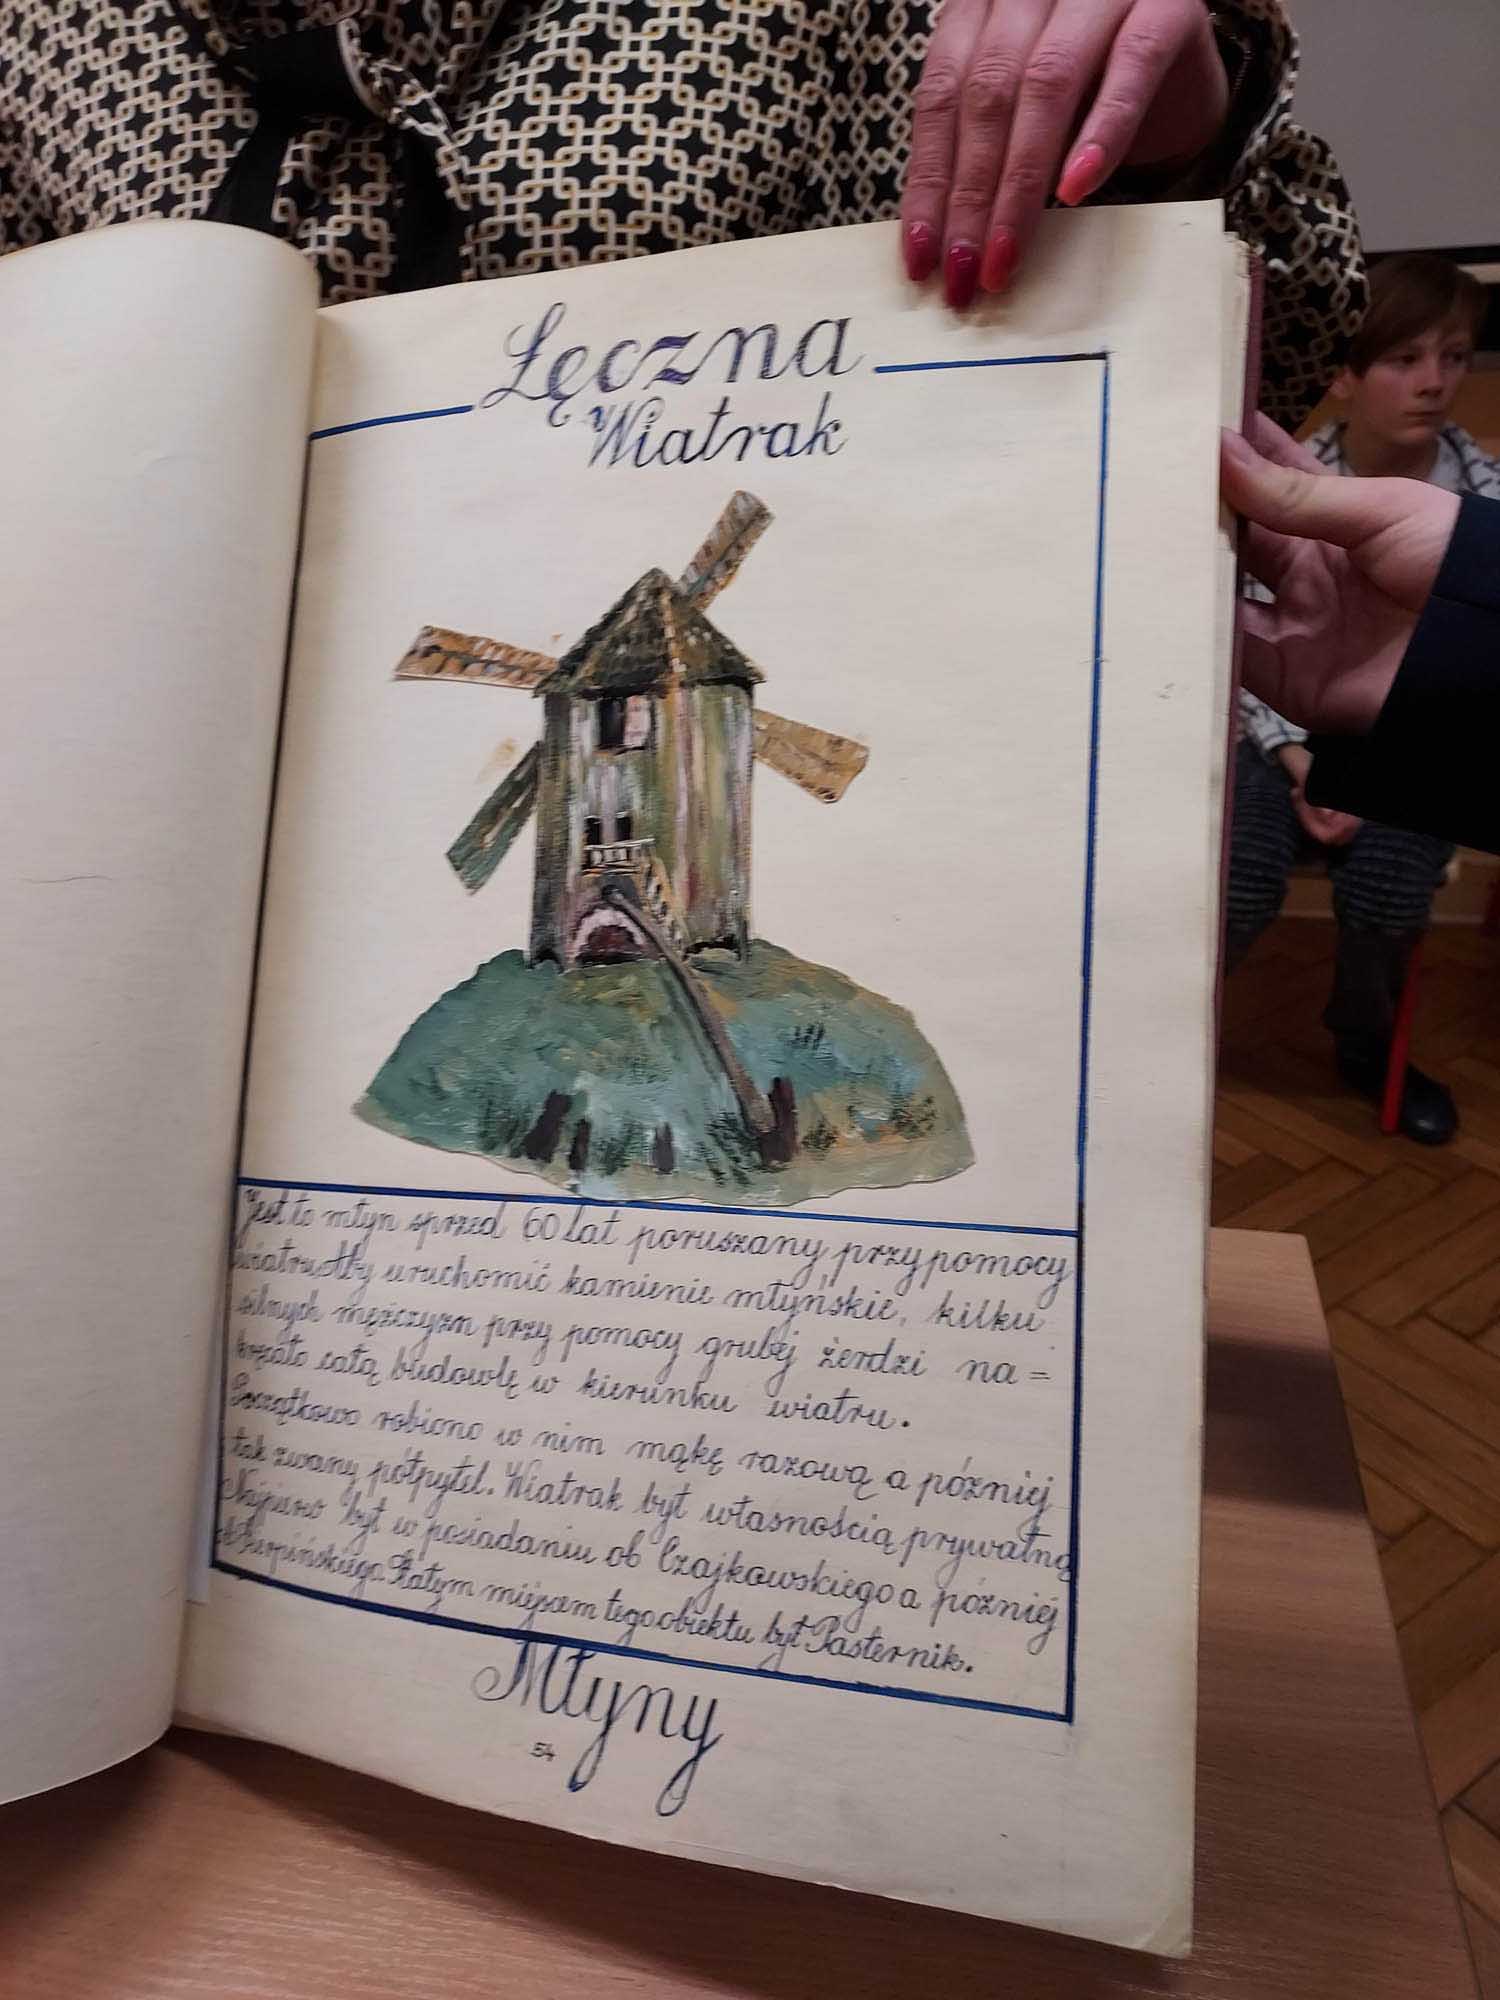 Łęczna
Wiatrak
Jest to młyn sprzed 60 lat poruszany przy pomocy
wiatru. Aby uruchomić kamienie młyńskie, kilku
silnych mężczyzn przy pomocy grubej żerdzi na=
kręcało całą budowlę w kierunku wiatru.
Początkowo robiono w nim mąkę razową a później
tak zwany półpytel. Wiatrak był własnością prywatną
Najpierw był w posiadaniu ob Czajkowskiego a później
ob Sierpińskiego. Stałym miejscem tego obiektu był Pasternik.
Młyny
54